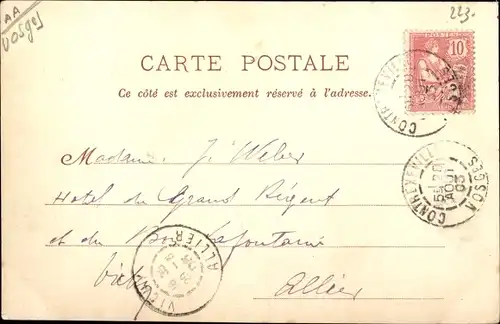 AA
Vosges
223.
POSTES
10
CARTE POSTALE
Ce côté est exclusivement réservé à l'adresse.
CONTREXEVILLE
VOSGES
CONTREXEVILLE
5E 20
AOUT
03
VOSGES
Madame J. Weber
Hotel du Grand Régent
et du Bon Lafontaine
Vichy
Allier
VICHY
ALLIER